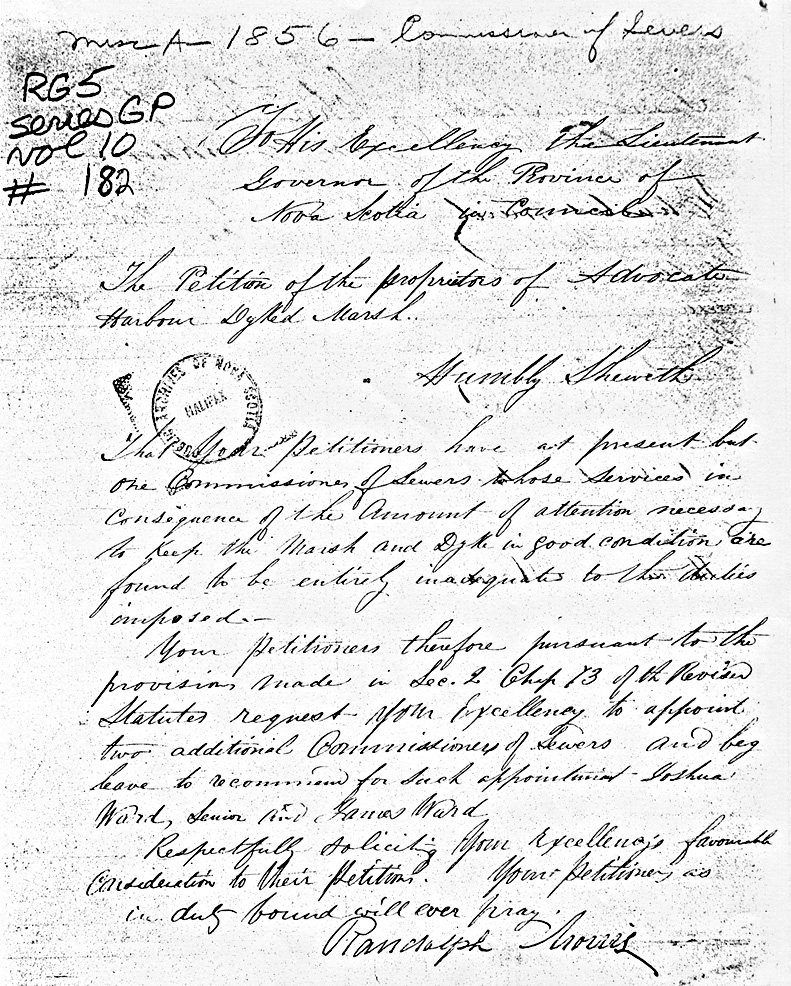 Misc A - 1856 - Commissioner of Sewers
RG5
series GP
vol 10
# 182
To His Excellency The Lieutenant
Governor of the Province of
Nova Scotia in Council
The Petition of the proprietors of Advocate
Harbour Dyked Marsh.
Humbly Sheweth
PUBLIC ARCHIVES OF NOVA SCOTIA
HALIFAX
That Your Petitioners have at present but
one Commissioner of Sewers whose services in
consequence of the Amount of attention necessary
to keep the Marsh and Dyke in good condition, are
found to be entirely inadequate to the duties
imposed.-
Your Petitioners therefore pursuant to the
provisions made in Sec. 2 Chap 73 of the Revised
Statutes request Your Excellency to appoint
two additional Commissioners of Sewers and beg
leave to recommend for such appointment Joshua
Ward, Senior and James Ward
Respectfully soliciting Your Excellency's favourable
Consideration to their Petition. Your Petitioners as
in duty bound will ever pray.
Randolph Morris